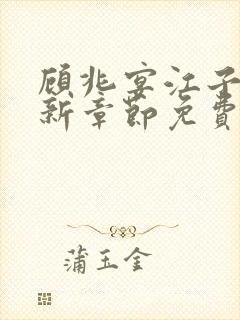 顾兆宴江子
新章节免费
蒲玉金